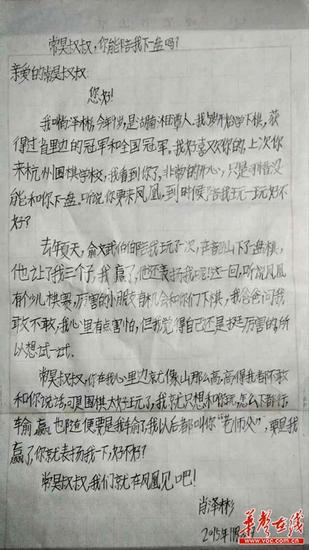 常昊叔叔,你能陪我下一盘吗?
亲爱的常昊叔叔:
您好!
我叫肖泽彬,今年岁,是湖南湘潭人。我岁开始学下棋,获
得过省里边的冠军和全国冠军。我好喜欢你的,上次你
来杭州国棋学校,我看到你了,非常的开心,只是可惜没
能和你下一盘。听说你要来凤凰,到时候陪我玩一玩好不
好?
去年夏天,俞斌伯伯陪我玩了一次,在韶山下了一盘棋,
他让了我三个子,我赢了,他还表扬我了。这一回,听说凤凰
有个少儿棋赛,厉害的小朋友有机会和你们下棋,我爸爸问我
敢不敢,我心里有点害怕,但我觉得自己还是挺厉害的,所
以想试一试。
常昊叔叔,你在我心里边就像山那么高,高得我都不敢
和你说话,可是围棋太好玩了,我就只想和你玩,怎么下都行
输赢也随便,要是我输了,我以后都叫你“老师父”,要是我
赢了,你就表扬我一下,好不好?
常昊叔叔,我们就在凤凰见吧!
肖泽彬
2015年
华声在线
www.voc.com.cn